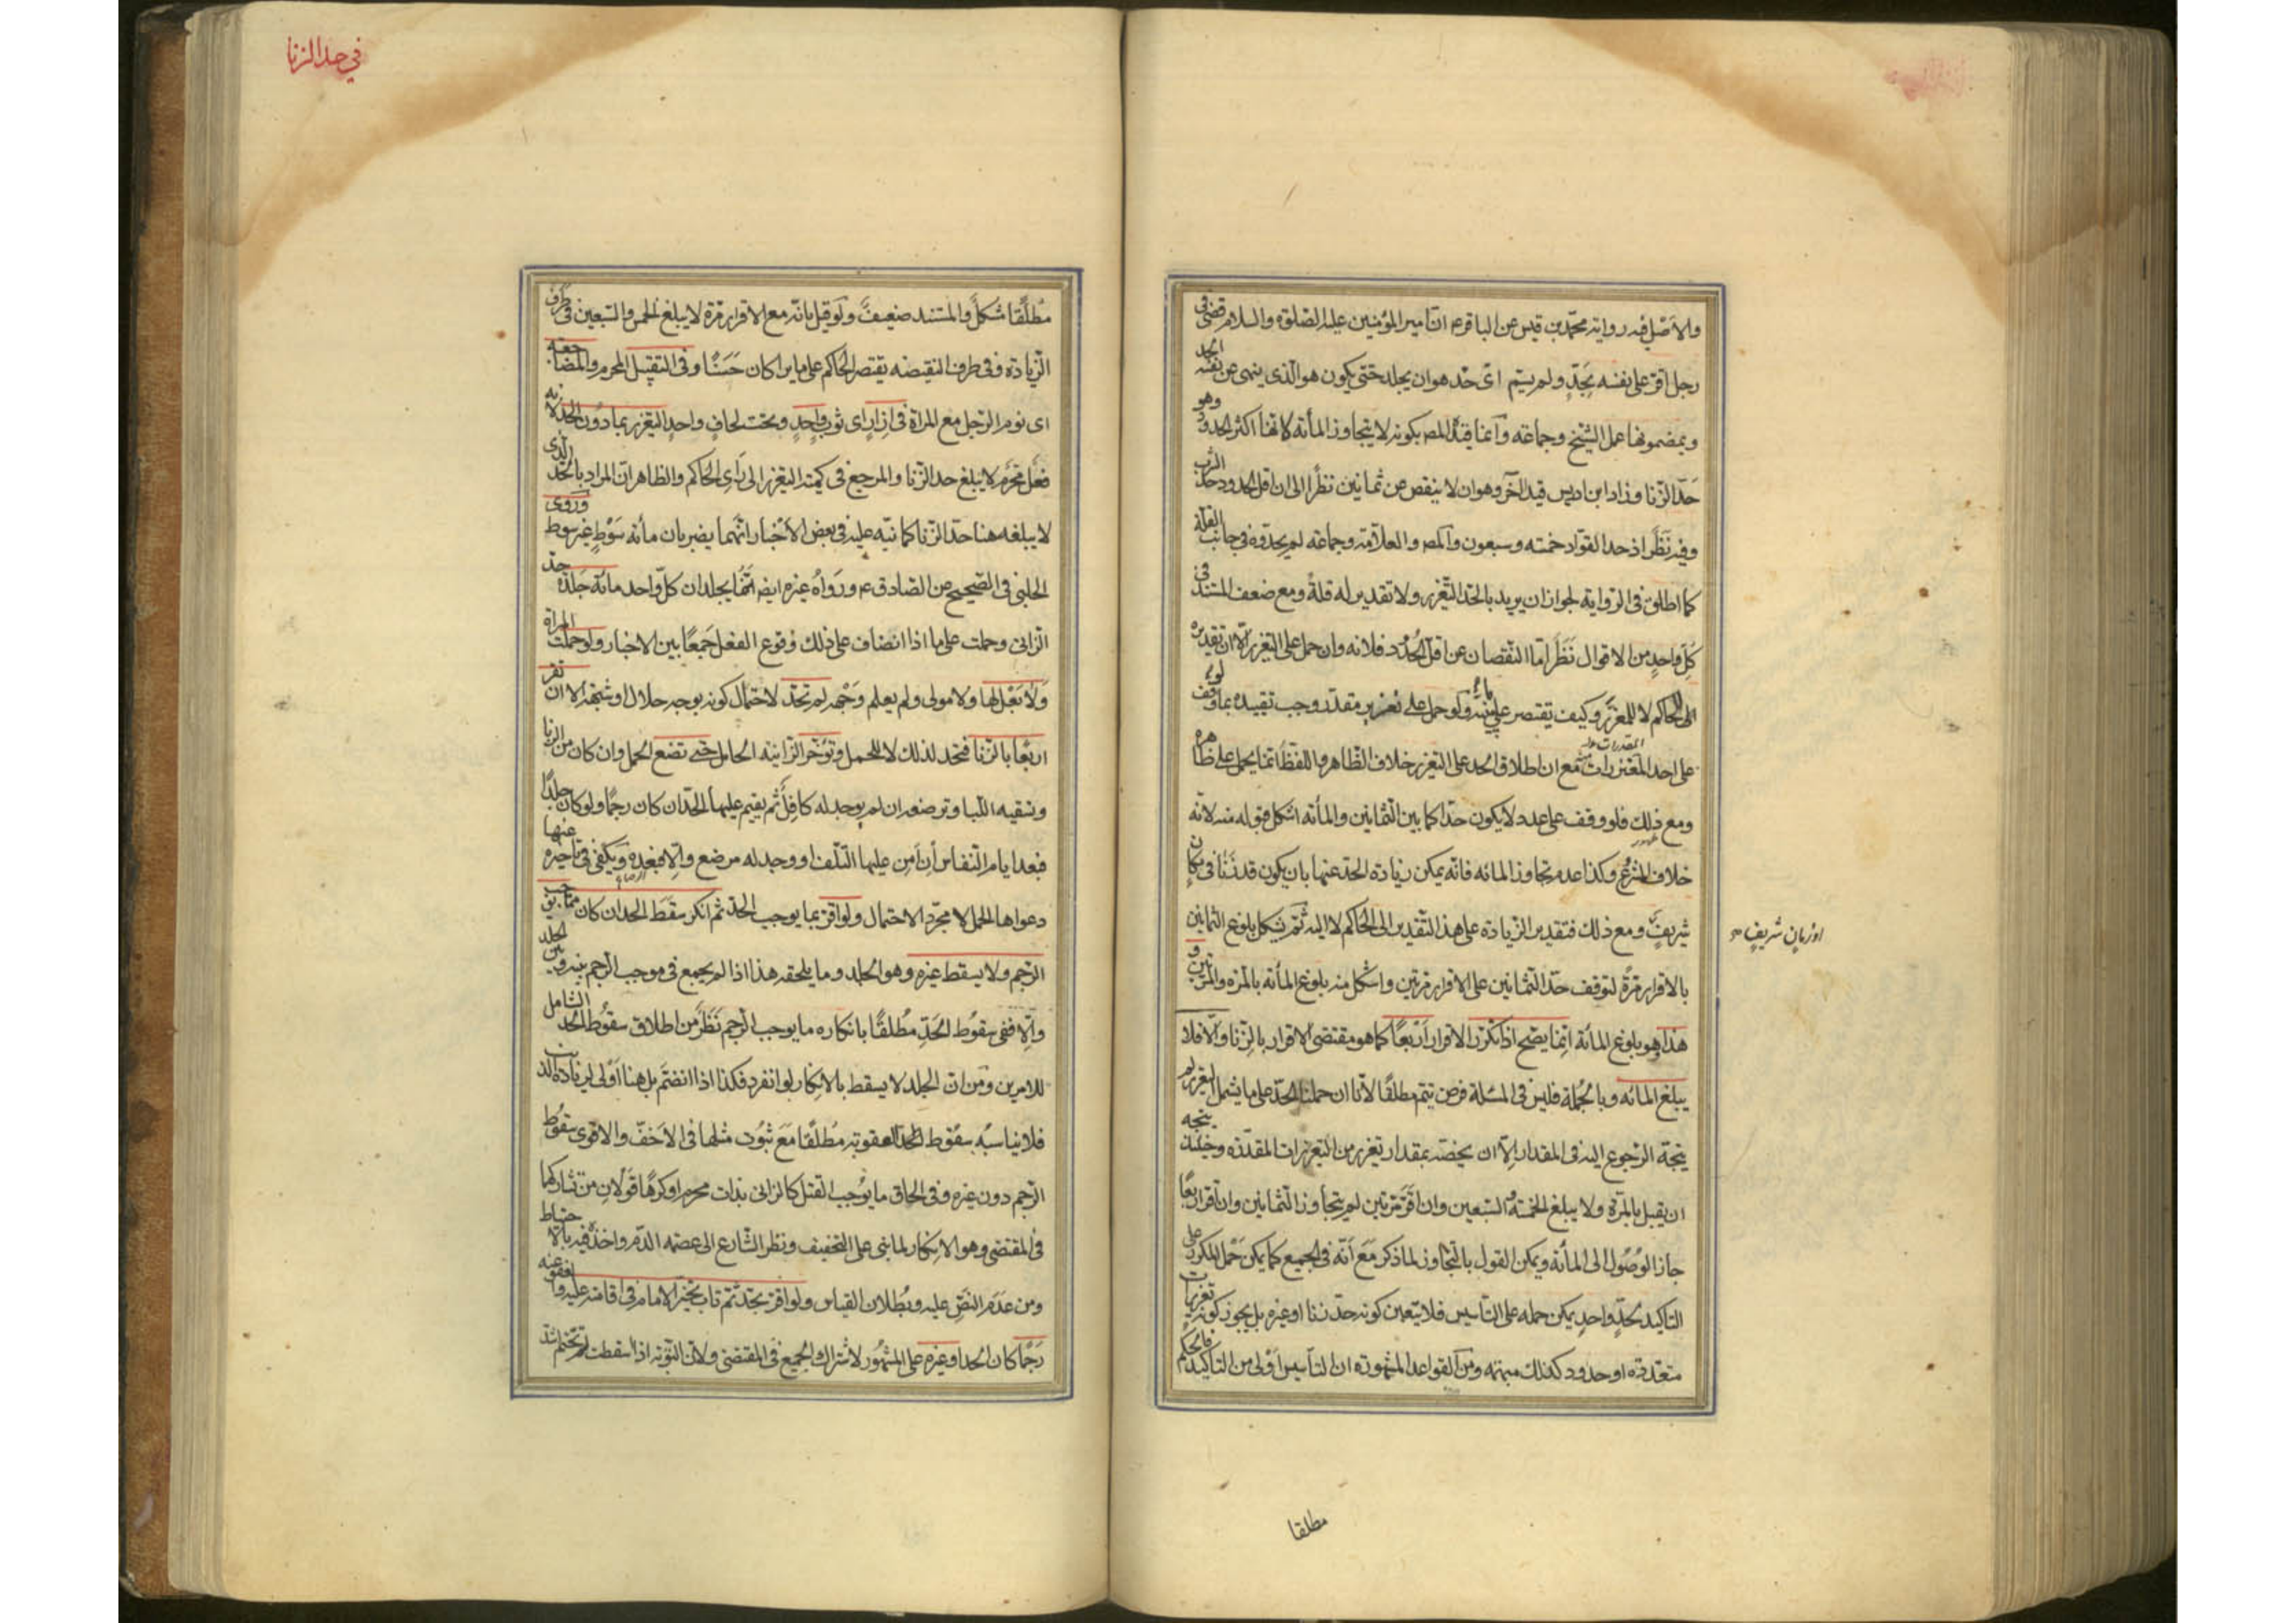 والأصل فيه رواية محمد بن قيس عن الباقر ع ان امير المؤمنين عليه الصلوة والسلام قضى في
رجل اقر على نفسه بحدٍ ولم يسم اىّ حد هو ان يجلد حتى يكون هو الذى ينهى عن نفسه الحد
وبمضمونها عمل الشيخ وجماعة وانما قيّده المص بكونه لا يتجاوز المأة لانها اكثر الحدود وهو
حدّ الزنا وزاد ابن ادريس قيدا آخر وهو ان لا ينقص عن ثمانين نظراً الى ان اقل الحدود حد الشرب
وفيه نَظَر اذ حد القواد خمسة وسبعون والمص والعلامة وجماعة لم يحدوه في جانب القلة
كما اطلق في الرواية لجواز ان يريد بالحد التعزير ولا تقدير له قلةً ومع ضعف المستند في
كلِّ واحدٍ من الاقوال نَظَر اما النقصان عن اقل الحدود فلانه وان حمل على التعزير الا ان تقديره
الى الحاكم لا للمعزّر وكيف يقتصر على نهيه ولو حمل على تعزير مقدّر وجب تقييده بما لو وقف
على احد المقدرات منه مع ان اطلاق الحد على التعزير خلاف الظاهر واللفظ انما يحمل على ظاهره
ومع ذلك فلو وقف على عدد لا يكون حدّا كما بين الثمانين والمأة اشكل قبوله منه لانه
خلاف المشروع وكذا عدم تجاوز المائه فانّه يمكن زيادة الحد عنها بان يكون قد زنٰا في مكان
شريفٍ ومع ذلك فتقدير الزيادة على هذا التقدير الى الحاكم لا اليه ثم يشكل بلوغ الثمانين
او زمان شريف صح
بالاقرار مرةً لتوقف حدّ الثمانين على الاقرار مرتين واشكل منه بلوغ المأة بالمرة والمرتين و
هذا وهو بلوغ المائة انّما يصّح اذا تكرّر الاقرار اَربعاً كما هو مقتضى الاقرار بالزنا والا فلا
يبلغ المائه وبالجُملة فليس في المسئلة فرض يتم مطلقًا لأنا ان حملنا الحدّ على ما يشمل التعزير لم
يتجه الرجوع اليه في المقدار الا ان يخصّه بمقدار تعزير من التعزيرات المقدّره وحينئذ يتجه
ان يقبل بالمرّة ولا يبلغ الخمسة والسبعين وان اقرّ مرتين لم يتجاوز الثمانين وان اقر اربعًا
جاز الوُصُول الى المأة ويمكن القول بالتجاوز لما ذكر مَعَ اَنّه في الجميع كما يمكن حَمْل المكرر على
التاكيد لحدٍّ واحدٍ يمكن حمله على التأسيس فلا يتعين كونه حدّ زنا او غيره بل يجوز كونه تعزيرات
متعددة او حدود كذلك مبهمة ومن القواعد المشهورة ان التأسيس اَوْلى من التاكيد فالحكم
مطلقا
في حد الزنا
مُطلقًا مُشكلٌ والمستند ضعيفٌ ولَو قيل بانّه مع الاقرار مرّة لا يبلغ الخمس والسبعين في طَرف
الزيادة وفي طرف النقيصه يقتصر الحاكم على ما يراه كان حَسَنًا وفي التقبيل المحرم والمضاجعة
اى نوم الرجل مع المراة في اِزارٍ اى ثوبٍ واحدٍ وتحت لحافٍ واحدٍ التعزير بما دُون الحد لانه
فعل محرّم لا يبلغ حد الزنا والمرجع في كمية التعزير الى رَاىِ الحاكم والظاهر انّ المراد بالحدّ الذى
لا يبلغه هنا حدّ الزنا كما نبّه عليه في بعض الأخبار انّهما يضربان مأئة سَوْطٍ غير سوط وروى
الحلبى في الصّحيح عن الصادق ع ورواهُ غيره ايضا انهما يجلدان كلّ واحد مائة جَلدة حدّ
الزانى وحملت على ما اذا انضاف على ذلك وُقوع الفعل جَمعًا بين الاخبار ولو حملت المراة
وَلٰا بَعْل لها ولا مولى ولم يعلم وَجْهه لم تحدّ لاحتمال كونه بوجه حلال او شبهة الا ان تقر
اربعًا بالزنا فتحد لذلك لا للحمل وتؤخر الزانية الحامل حتى تضع الحمل وان كان من الزنا
وتسقيه اللبا وترضعه ان لم يوجد له كافل ثم يقيم عليها الحد ان كان رجمًا ولو كان جلدًا
فبعد ايام النفاس اِن اَمن عليها التلف او وجد له مرضع والا فبعده ويكفى في تاخيره عنها
دعواها الحمل لا مجرّد الاحتمال ولو اقر بما يوجب الحدّ ثم انكر سقط الحد ان كان مما يوجب
الرجم ولا يسقط غيره وهو الجلد وما يلحقه هذا اذا لم يجمع في موجب الرجم بينه وبين الجلد
والا ففى سقُوط الحدّ مُطلقًا بانكاره ما يوجب الرجم نَظَر من اطلاق سقُوط الحد الشامل
للامرين ومن ان الجلد لا يسقط بالانكار لو انفرد فكذا اذا انضمّ بل هنا اَوْلى لزيادة الذنب
فلا يناسبُه سقُوط العقوبة مُطلقًا مَعَ ثبُوت مثلها في الاَخفّ والاقوى سقُوط
الرجم دون غيره وفي الحاق ما يوُجب القتل كالزانى بذات محرم او كرهًا قولان من تشاركهما
في المقتضى وهو الانكار لما بنى على التخفيف ونظر الشارع الى عصمة الدّم واخذه فيه بالاحتياط
ومن عَدَم النصّ عليه وبُطلان القياس ولو اقر بحدّ ثم تاب تخيّر الامام في اقامته عليه والعفو عنه
رَجمًا كان الحد او غيره على المشهُور لاشتراك الجميع في المقتضى ولان التوبة اذا اسقطت تحتم اشد